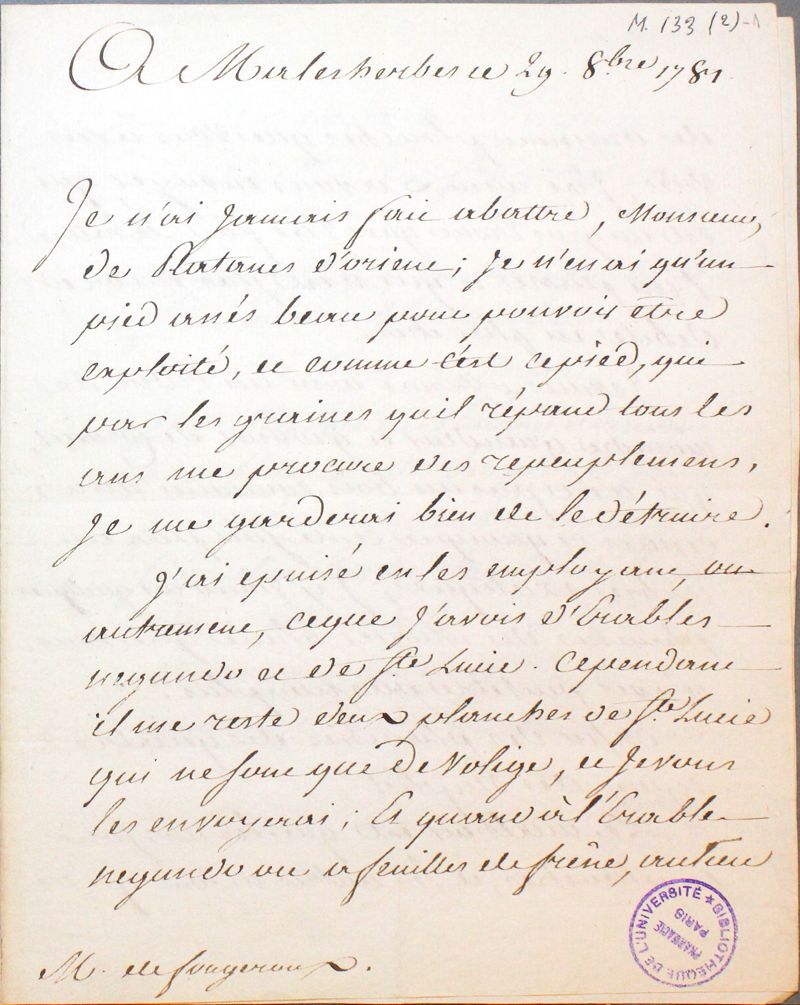 M. 133 (2)-1
A Malesherbes ce 29. 8.bre 1781.
Je n'ai Jamais fait abattre, Monsieur,
de Platanes d'orient; Je n'en ai qu'un
pied assés beau pour pouvoir être
exploité, et comme c'est ce pied, qui
par les graines qu'il répand tous les
ans me procure des repeuplemens,
Je me garderai bien de le détruire.
J'ai épuisé en les employant, ou
autrement, ce que J'avois d'Erables
negundo et de Ste Lucie. Cependant
il me reste deux planches de Ste Lucie
qui ne sont que de Volige, et Je vous
les envoyerai; Et quand à l'Erable
negundo ou a feuilles de frêne, au lieu
M. de fougeroux.
BIBLIOTHÈQUE DE L'UNIVERSITÉ
PHARMACIE
PARIS